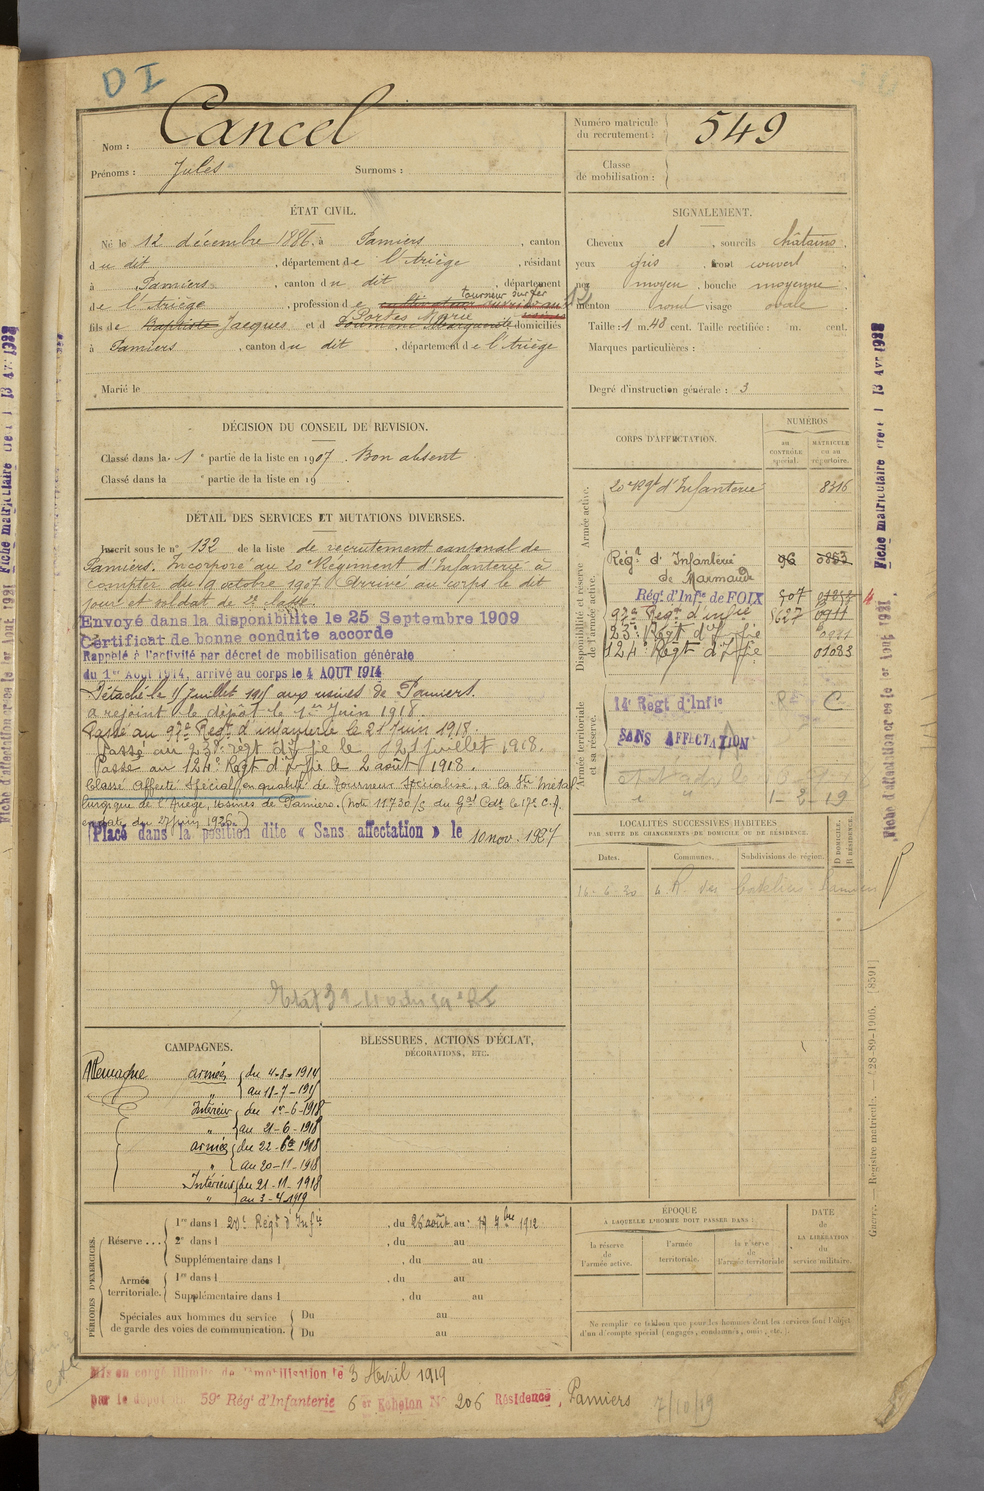 DI
Nom : Cancel
Prénoms : Jules Surnoms :
Numéro matricule du recrutement : 549
Classe de mobilisation :
ÉTAT CIVIL.
Né le 12 décembre 1886, à Pamiers, canton
du dit, département de l'Ariège, résidant
à Pamiers, canton du dit, département
tourneur sur fer
de l'Ariège, profession de cultivateur
Portes Marie
fils de Baptiste Jacques et d domiciliés
à Pamiers, canton du dit, département de l'Ariège
Marié le
SIGNALEMENT.
Cheveux et, sourcils châtains,
yeux gris, front couvert
nez moyen, bouche moyenne
menton rond visage ovale
Taille : 1 m. 48 cent. Taille rectifiée : m. cent.
Marques particulières :
Degré d'instruction générale : 3
DÉCISION DU CONSEIL DE REVISION.
Classé dans la 1e partie de la liste en 1907. Bon absent
Classé dans la e partie de la liste en 19 .
DÉTAIL DES SERVICES ET MUTATIONS DIVERSES.
Inscrit sous le n° 132 de la liste de recrutement cantonal de
Pamiers. Incorporé au 20e Régiment d'Infanterie à
compter du 9 octobre 1907. Arrivé au corps le dit
jour et soldat de 2e classe.
Envoyé dans la disponibilité le 25 Septembre 1909
Certificat de bonne conduite accordé
Rappelé à l'activité par décret de mobilisation générale
du 1er Août 1914, arrivé au corps le 4 AOUT 1914
Détaché le juillet 1915 aux usines de Pamiers.
a rejoint le dépôt le 1er Juin 1918.
Passé au 97e Regt d'infanterie le 21 Juin 1918.
Passé au 23e régt d'Infie le 21 juillet 1918.
Passé au 124e Regt d'Infie le 2 août 1918.
Classé Affecté Spécial en qualité de Tourneur Spécialisé, à la Sté Métal
lurgique de l'Ariège, Usines de Pamiers. (Note 11730/S du Gal Cdt le 17e C.A.
en date du 27 juin 1926.)
Placé dans la position dite « Sans affectation » le 10 nov. 1927
CORPS D'AFFECTATION.
NUMÉROS
au CONTRÔLE spécial.
MATRICULE ou au répertoire.
Armée active.
20e Rgt d'Infanterie 8316
Disponibilité et réserve de l'armée active.
Régt d'Infanterie de Marmande 96 0853
Rég. d'Infie de FOIX 507
97e Regt d'infie 5627 0911
23e Régt d'Infie 0911
124e Regt d'Infie 01083
Armée territoriale et sa réserve.
14e Régt d'Infie C
SANS AFFECTATION
1-2-19
LOCALITÉS SUCCESSIVES HABITÉES
PAR SUITE DE CHANGEMENTS DE DOMICILE OU DE RÉSIDENCE.
Dates. Communes. Subdivisions de région. D DOMICILE. R RÉSIDENCE.
16-6-20 6 R. des Pamiers
CAMPAGNES.
Allemagne armées du 4-8-1914
au 11-7-1915
Intérieur du 1er-6-1918
" au 21-6-1918
armées du 22-6-1918
" au 20-11-1918
Intérieur du 21-11-1918
" au 3-4-1919
BLESSURES, ACTIONS D'ÉCLAT,
DÉCORATIONS, ETC.
PÉRIODES D'EXERCICES.
Réserve ... 1re dans l 20e Régt d'Infie, du 26 août au 17 7bre 1912
2e dans l , du au
Supplémentaire dans l , du au
Armée territoriale. 1re dans l , du au
Supplémentaire dans l , du au
Spéciales aux hommes du service Du au
de garde des voies de communication. Du au
ÉPOQUE
À LAQUELLE L'HOMME DOIT PASSER DANS :
la réserve de l'armée active.
l'armée territoriale.
la réserve de l'armée territoriale
DATE de LA LIBÉRATION du service militaire.
Ne remplir ce tableau que pour les hommes dont les services font l'objet
d'un décompte spécial (engagés, condamnés, omis, etc.
Mis en congé illimité de démobilisation le 3 Avril 1919
par le dépôt du 59e Rég. d'Infanterie 6 er Echelon N° 206 Résidence, Pamiers 7/10/19
Guerre. — Registre matricule. — 28-89-1906. [8591]